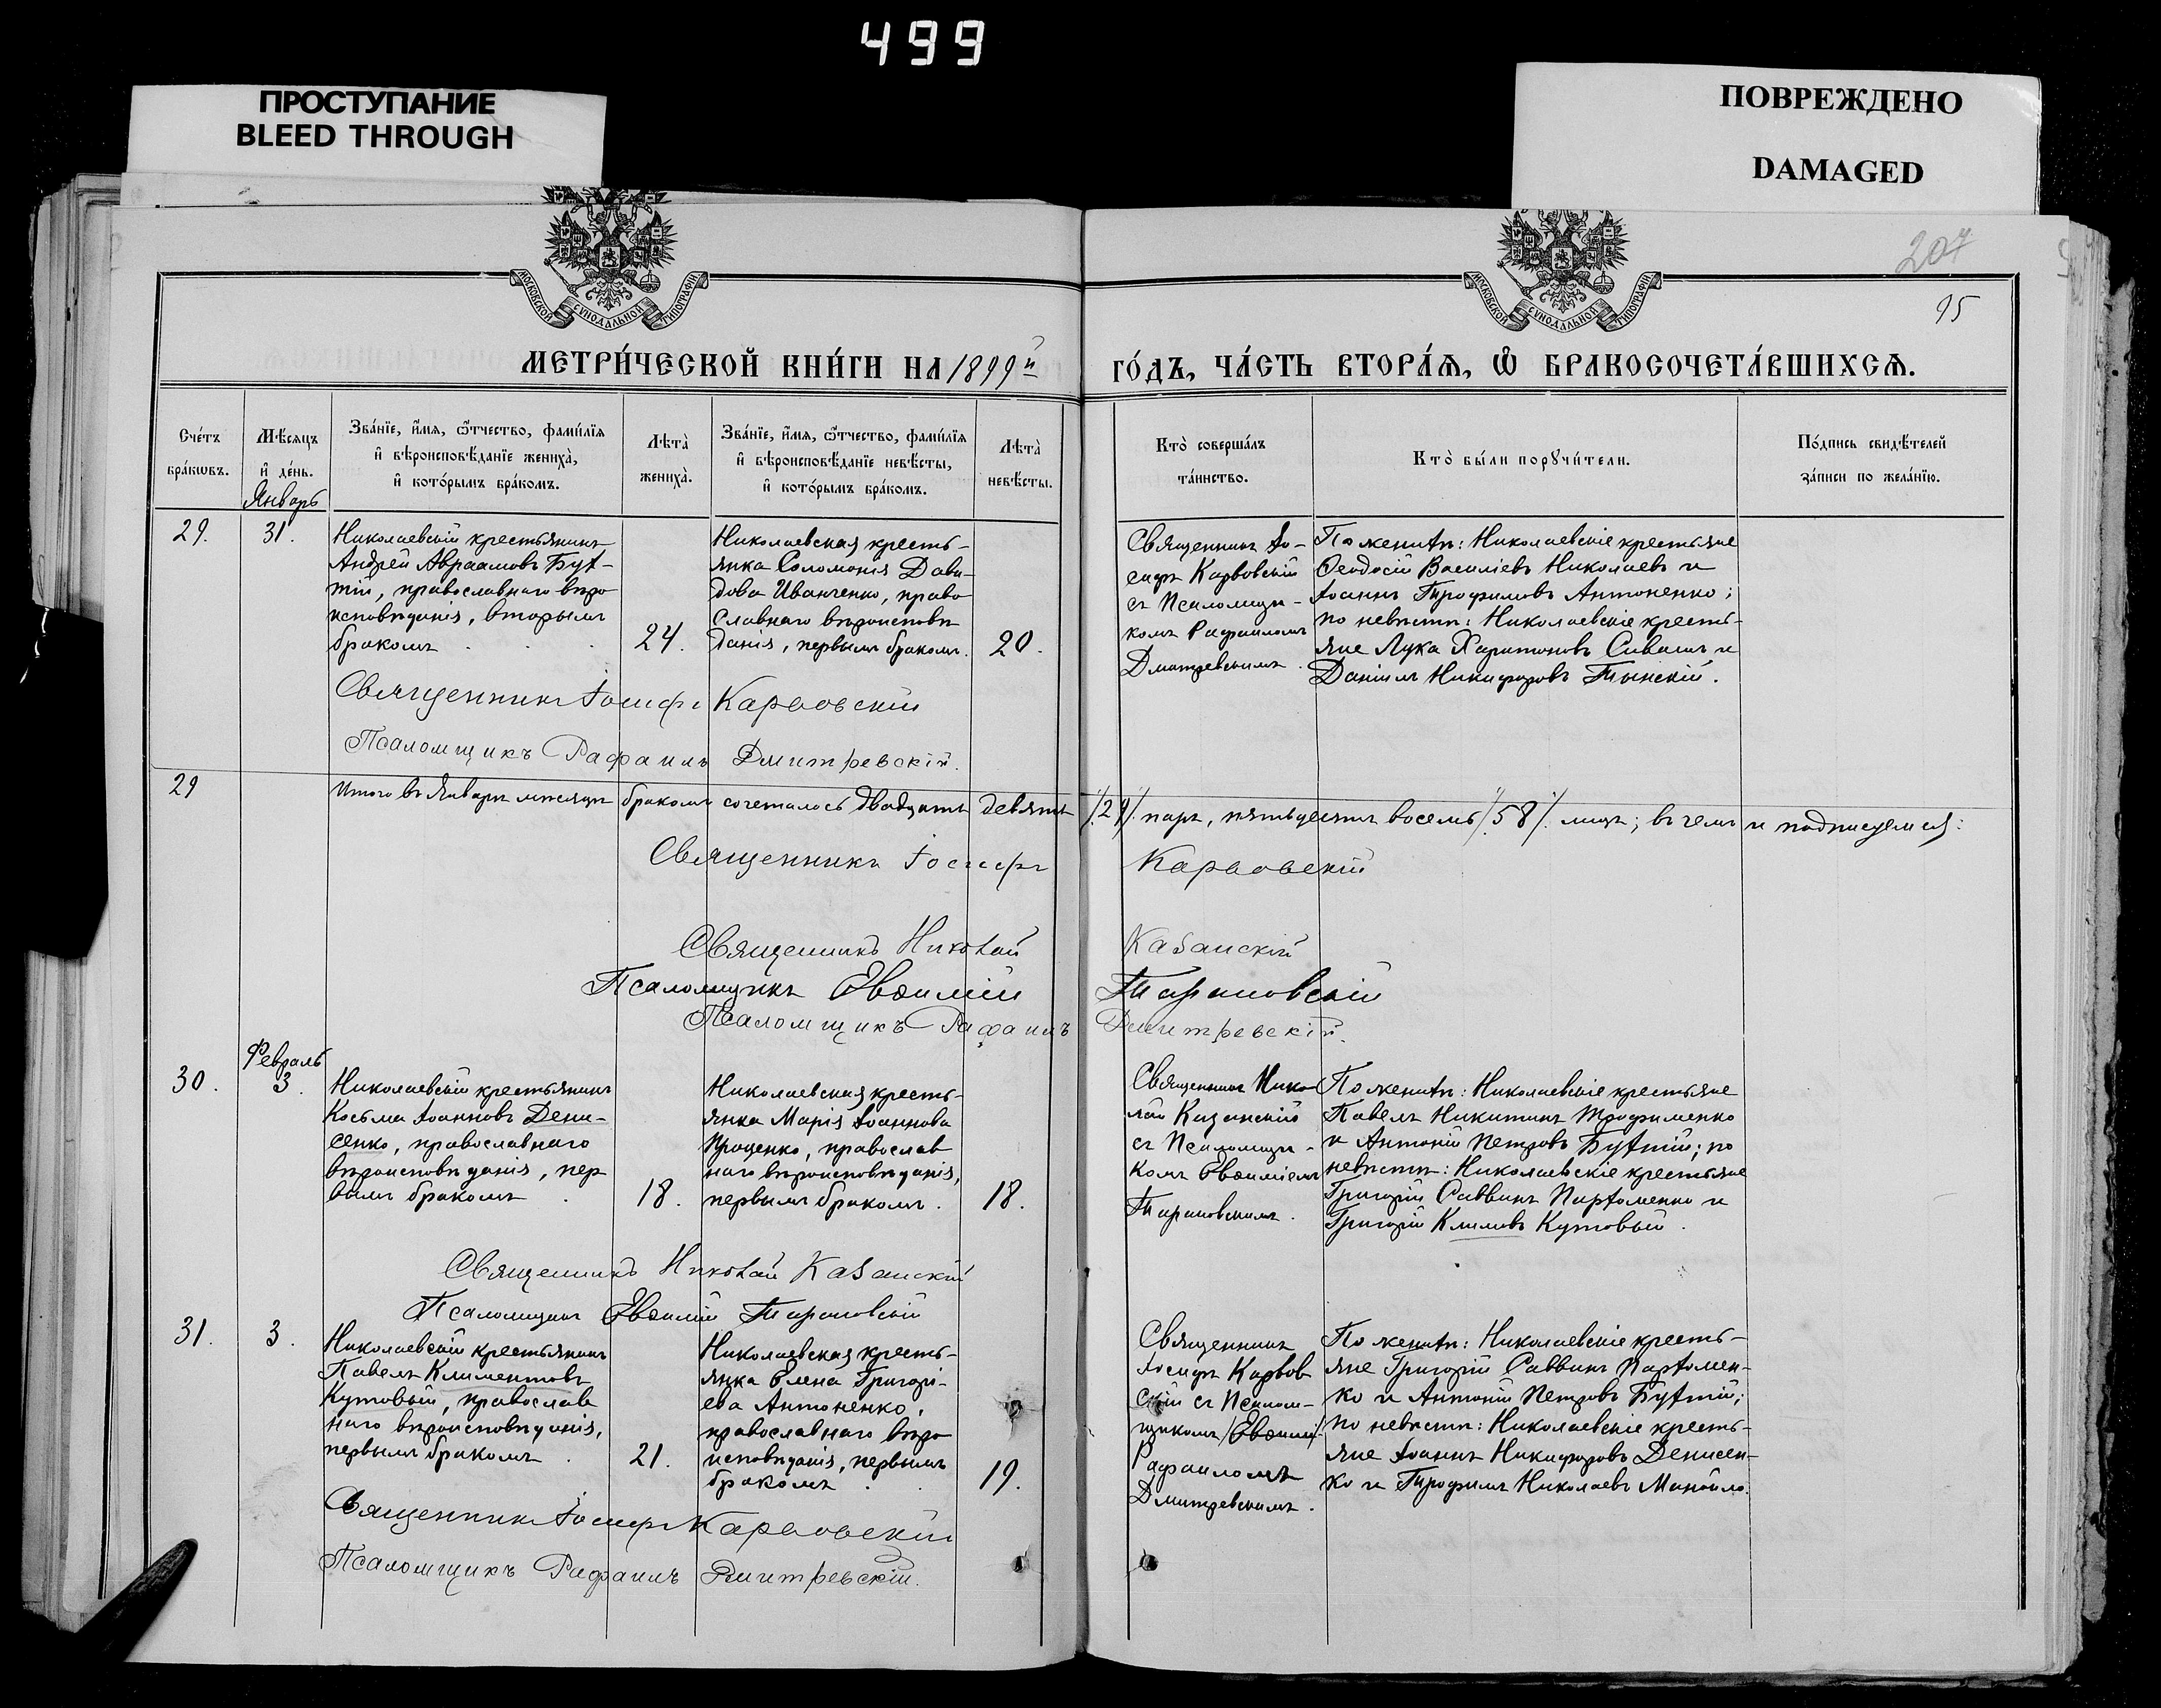 499
ПРОСТУПАНИЕ
BLEED THROUGH
ПОВРЕЖДЕНО
DAMAGED
МОСКОВСКОЙ СѴНОДАЛЬНОЙ ТИПОГРАФІИ
МОСКОВСКОЙ СѴНОДАЛЬНОЙ ТИПОГРАФІИ
207
95
МЕТРИ́ЧЕСКОЙ КНИ́ГИ НА 1899й
ГО́ДЪ, ЧА́СТЬ ВТОРА́Ѧ, Ѽ БРАКОСОЧЕТА́ВШИХСѦ.
Сче́тъ
бра́кѡвъ.
Мѣ́сяцъ
и҆ де́нь.
Январь
Зва́нїе, и҆́мѧ, ѻ҆́тчество, фами́лїѧ
и҆ вѣроисповѣ́данїе жениха̀,
и҆ кото́рымъ бра́комъ.
Лѣта̀
жениха̀.
Зва́нїе, и҆́мѧ, ѻ҆́тчество, фами́лїѧ
и҆ вѣроисповѣ́данїе невѣ́сты,
и҆ кото́рымъ бра́комъ.
Лѣта̀
невѣ́сты.
Кто̀ соверша́лъ
та́инство.
Кто̀ бы́ли порꙋчи́тели.
По́дпись свидѣ́телей
за́писи по жела́нїю.
29.
31.
Николаевскій крестьянинъ
Андрей Авраамовъ Буѳ-
тій, православнаго вѣро
исповѣданія, вторымъ
бракомъ
24.
Николаевская кресть-
янка Соломонія Дави-
дова Иванченко, право
славнаго вѣроисповѣ
данія, первымъ бракомъ.
20.
Священникъ Іо-
сифъ Карвовскій
съ Псаломщи-
комъ Рафаиломъ
Дмитревскимъ.
По женихѣ: Николаевскіе крестьяне
Ѳеодосій Василіевъ Николаевъ и
Іоаннъ Трофимовъ Антоненко;
по невѣстѣ: Николаевскіе кресть-
яне Лука Харитоновъ Сивашъ и
Даніилъ Никифоровъ Тынскій.
Священникъ Іосифъ Карвовскій
Псаломщикъ Рафаилъ Дмитревскій.
29
Итого въ Январѣ мѣсяцѣ бракомъ сочеталось двадцать девять /.29/. паръ, пятьдесятъ восемь /.58/. лицъ; въ чемъ и подписуемся:
Священникъ Іосифъ Карвовскій
Священникъ Николай Казанскій
Псаломщикъ Евѳимій Тарановскій
Псаломщикъ Рафаилъ Дмитревскій.
Февраль
30.
3.
Николаевскій крестьянинъ
Косьма Іоанновъ Дени-
сенко, православнаго
вѣроисповѣданія, пер
вымъ бракомъ
18.
Николаевская кресть-
янка Марія Іоаннова
Проценко, православ
наго вѣроисповѣданія,
первымъ бракомъ.
18.
Священникъ Нико-
лай Казанскій
съ Псаломщи-
комъ Евѳиміемъ
Тарановскимъ.
По женихѣ: Николаевскіе крестьяне
Павелъ Никитинъ Трофименко
и Антоній Петровъ Буѳтій; по
невѣстѣ: Николаевскіе крестьяне
Григорій Саввинъ Парѳоменко и
Григорій Климовъ Кутовый.
Священникъ Николай Казанскій
Псаломщикъ Евѳимій Тарановскій
31.
3.
Николаевскій крестьянинъ
Павелъ Климентовъ
Кутовый, православ
наго вѣроисповѣданія,
первымъ бракомъ
21.
Николаевская кресть-
янка Елена Григорі-
ева Антоненко,
православнаго вѣро
исповѣданія, первымъ
бракомъ
19.
Священникъ
Іосифъ Карвов
скій съ Псалом-
щикомъ /Евѳимі/
Рафаиломъ
Дмитревскимъ.
По женихѣ: Николаевскіе кресть-
яне Григорій Саввинъ Парѳомен-
ко и Антоній Петровъ Буѳтій;
по невѣстѣ: Николаевскіе кресть-
яне Іоаннъ Никифоровъ Денисен-
ко и Трофимъ Николаевъ Манойло.
Священникъ Іосифъ Карвовскій
Псаломщикъ Рафаилъ Дмитревскій.